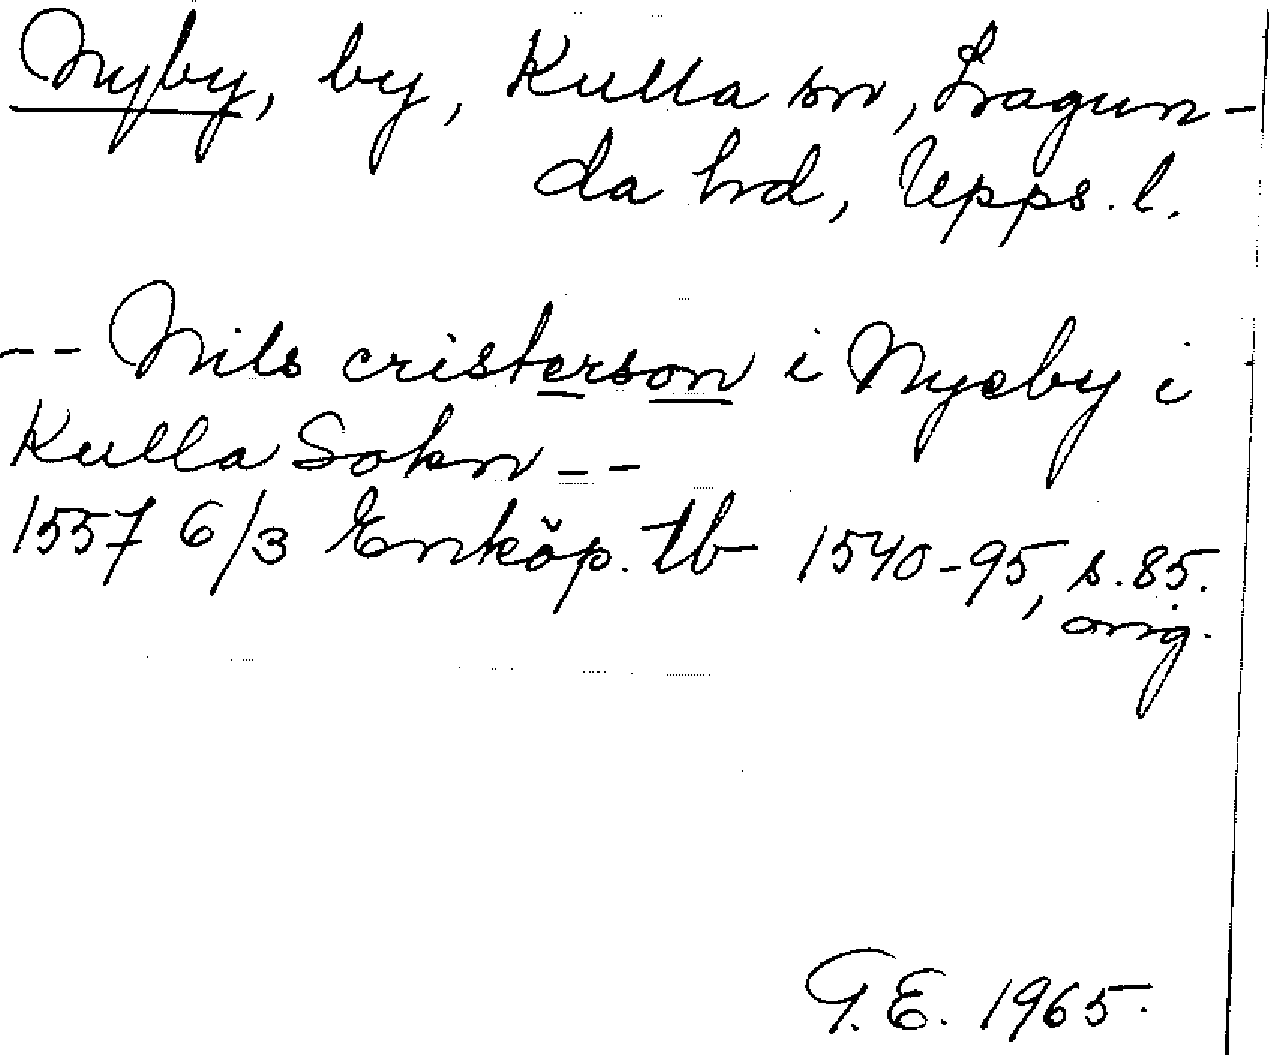 Nyby, by, Kulla sn, Lagun-
da hd, Upps. l.
-- Nils cristerson i Nyeby i
Kulla Sokn --
1557 6/3 Enköp. tb 1540-95, s. 85.
orig.
G.E. 1965.